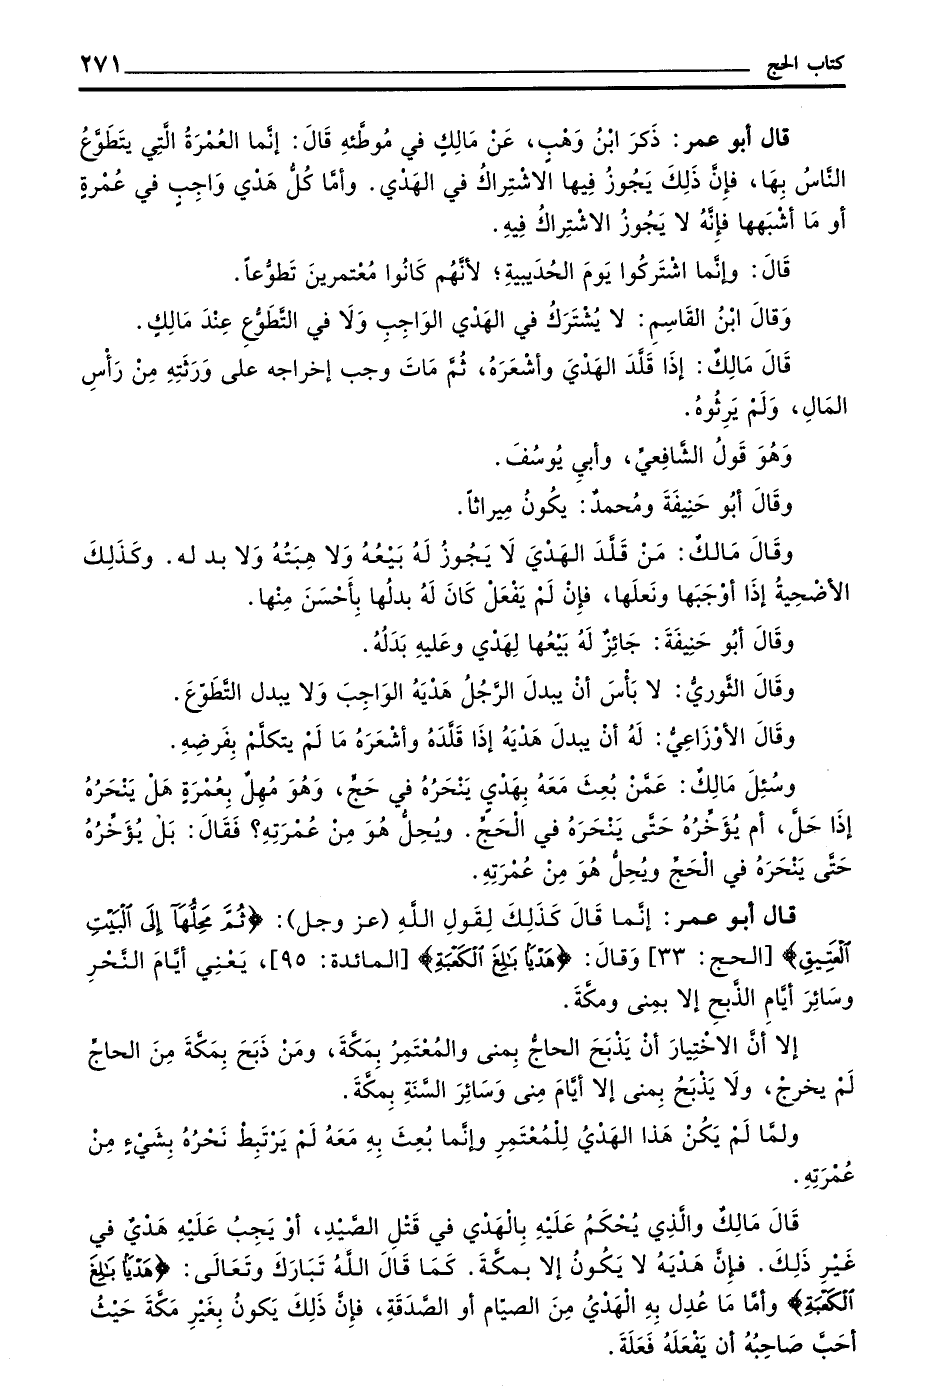 كتاب الحج ٢٧١
قال أبو عمر: ذَكرَ ابْنُ وَهْبٍ، عَنْ مَالِكٍ في مُوطَّئهِ قَالَ: إنَّما العُمْرَةُ الَّتِي يتَطَوَّعُ
النَّاسُ بِهَا، فإنَّ ذَلِكَ يَجُوزُ فِيها الاشْتِراكُ في الهَدْيِ. وأمَّا كُلُّ هَدْيٍ وَاجِبٍ في عُمْرةٍ
أو مَا أشْبَهها فإنَّهُ لا يَجُوزُ الاشْتِراكُ فِيهِ.
قَالَ: وإنَّما اشْتَركُوا يَومَ الحُدَيبيةِ؛ لأنَّهُم كَانُوا مُعْتمرينَ تَطوُّعاً.
وَقالَ ابْنُ القَاسِمِ: لا يُشْتَرَكُ في الهَدْيِ الوَاجِبِ وَلَا في التَّطَوُّعِ عِنْدَ مَالِكٍ.
قَالَ مَالِكٌ: إذَا قَلَّدَ الهَدْيَ وأشْعَرَهُ، ثُمَّ مَاتَ وجب إخراجه على وَرَثَتِهِ مِنْ رَأْسِ
المَالِ، وَلَمْ يَرِثُوهُ.
وَهُوَ قَولُ الشَّافِعيِّ، وأبي يُوسُفَ.
وقَالَ أبُو حَنِيفَةَ ومُحمدٌ: يكُونُ مِيراثاً.
وقَالَ مَالكٌ: مَنْ قَلَّدَ الهَدْيَ لَا يَجُوزُ لَهُ بَيْعُهُ وَلا هِبَتُهُ وَلا بد له. وكَذَلِكَ
الأضْحِيةُ إذَا أوْجَبَها ونَعلَها، فإنْ لَمْ يَفْعَلْ كَانَ لَهُ بدلُها بِأَحْسَنَ مِنْها.
وقَالَ أبُو حَنِيفَةَ: جَائِزٌ لَهُ بَيْعُها لِهَدْيٍ وعَليهِ بَدَلُهُ.
وقَالَ الثَّوريُّ: لا بَأْسَ أنْ يبدلَ الرَّجُلُ هَدْيَهُ الوَاجِبَ وَلا يبدل التَّطَوّعَ.
وقَالَ الأوْزَاعِيُّ: لَهُ أنْ يبدلَ هَدْيَهُ إذَا قلَّدَهُ وأشْعَرَهُ مَا لَمْ يتكلَّمْ بِفَرضِهِ.
وسُئِلَ مَالِكٌ: عَمَّنْ بُعِثَ مَعَهُ بِهَدْيٍ يَنْحَرُهُ في حَجٍّ، وَهُوَ مُهِلٌ بِعُمْرَةٍ هَلْ يَنْحَرُهُ
إذَا حَلَّ، أم يُؤَخِّرُهُ حَتَّى يَنْحَرَهُ في الْحَجِّ. ويُحِلُّ هُوَ مِنْ عُمْرَتِهِ؟ فَقَالَ: بَلْ يُؤَخِّرُهُ
حَتَّى يَنْحَرَهُ في الْحَجِّ ويُحِلُّ هُوَ مِنْ عُمْرَتِهِ.
قال أبو عمر: إنَّما قَالَ كَذَلِكَ لِقَولِ اللَّهِ (عز وجل): ﴿ثُمَّ مَحِلُّهَآ إِلَى ٱلْبَيْتِ
ٱلْعَتِيقِ﴾ [الحج: ٣٣] وَقالَ: ﴿هَدْيًا بَٰلِغَ ٱلْكَعْبَةِ﴾ [المائدة: ٩٥]، يَعْنِي أيَّامَ النَّحْرِ
وسَائِرَ أيَّامِ الذَّبحِ إلا بمِنى ومكَّةَ.
إلا أنَّ الاخْتِيارَ أنْ يَذْبَحَ الحاجُّ بِمنى والمُعْتَمِرُ بِمَكَّةَ، ومَنْ ذَبَحَ بِمَكَّةَ مِنَ الحاجِّ
لَمْ يخرجْ، ولَا يَذْبَحُ بِمنى إلا أيَّامَ مِنى وَسَائِرَ السَّنَةِ بِمكَّةَ.
ولمَّا لَمْ يَكُنْ هَذا الهَدْيُ لِلْمُعْتَمِرِ وإنَّما بُعِثَ بِهِ مَعَهُ لَمْ يَرْتَبِطْ نَحْرُهُ بِشَيْءٍ مِنْ
عُمْرَتِهِ.
قَالَ مَالِكٌ والَّذِي يُحْكَمُ عَلَيْهِ بِالْهَدْيِ في قَتْلِ الصَّيْدِ، أوْ يَجِبُ عَلَيْهِ هَدْيٌ في
غَيْرِ ذَلِكَ. فإنَّ هَدْيَهُ لا يَكُونُ إلا بِمكَّةَ. كَمَا قَالَ اللَّهُ تَبَارَكَ وتَعَالَى: ﴿هَدْيًا بَٰلِغَ
ٱلْكَعْبَةِ﴾ وأمَّا مَا عُدِل بِهِ الْهَدْيُ مِنَ الصيّامِ أو الصَّدَقَةِ، فإنَّ ذَلِكَ يَكونُ بِغَيْرِ مَكَّةَ حَيْثُ
أحَبَّ صَاحِبُهُ أن يَفْعَلَهُ فَعَلَهَ.